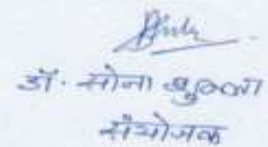 डॉ. सोना शुक्ला
संयोजक